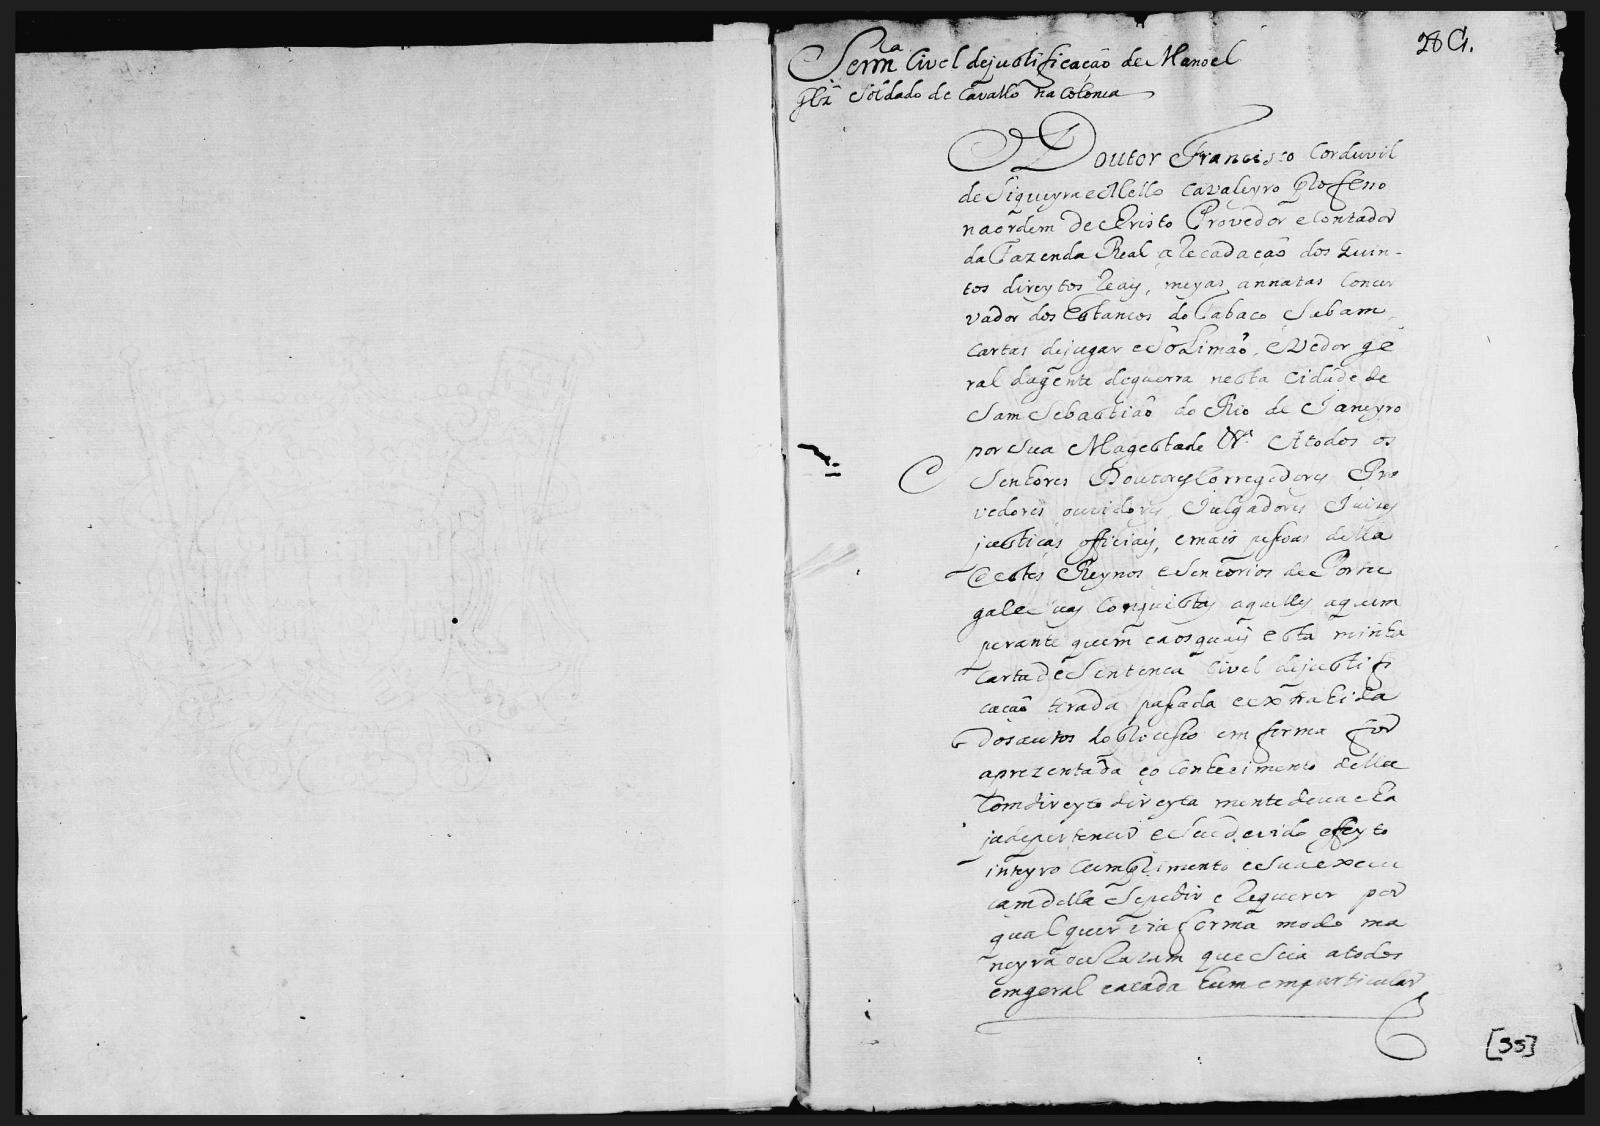 28 G.
Senn.ª Civel dejustificação de Manoel
Glz̃ Soldado de Cavallo na Colonia
Doutor Francisco Corduvil
de Siqueyra e Mello Cavaleyro Professo
na ordem de Christo Provedor e Contador
da Fazenda Real aRecadação dos Quin-
tos direytos Reays, meyas annatas Concer
vador dos Estancos do Tabaco Sabam,
Cartas dejugar e Solimão, e Vedor ge
ral dagente deguerra nesta Cidade de
Sam Sebastião do Rio de Janeyro
por Sua Magestade &.ª Atodos os
Senhores Doutores Corregedores Pro
vedores ouvidores Julgadores Juizes
justiças officiais, emais pesoas della
e estes Reynos eSenhorios de Portu
gal e Suas Conquistas aquelles aquem
perante quem eaosquais esta minha
Carta de Sentenca Civel dejustifi
cacaõ tirada pasada eextrahida
dosautos do Proceso em forma for
aprezentada eo Conhecimento della
Com direyto direyta mente deva eha
jadepertencer eSeu devido effeyto
inteyro Cumprimento eSua execu
cam della Sepedir e Requerer por
qual quer via forma modo ma
neyra ou Razam que Seia atodos
emgeral eacada hum emparticular
[35]